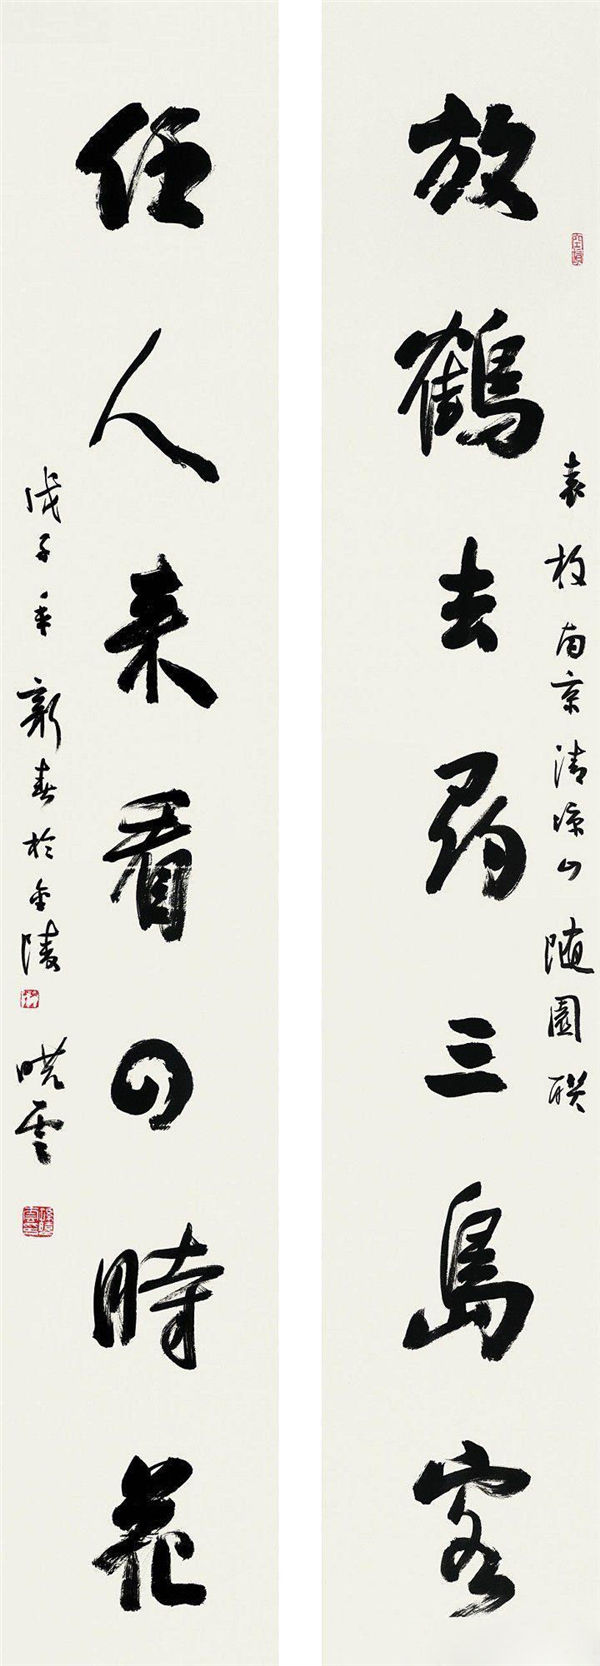 放鶴去尋三島客
袁枚南京清凉山随園联
任人来看四時花
戊子年新春於金陵
晓雲